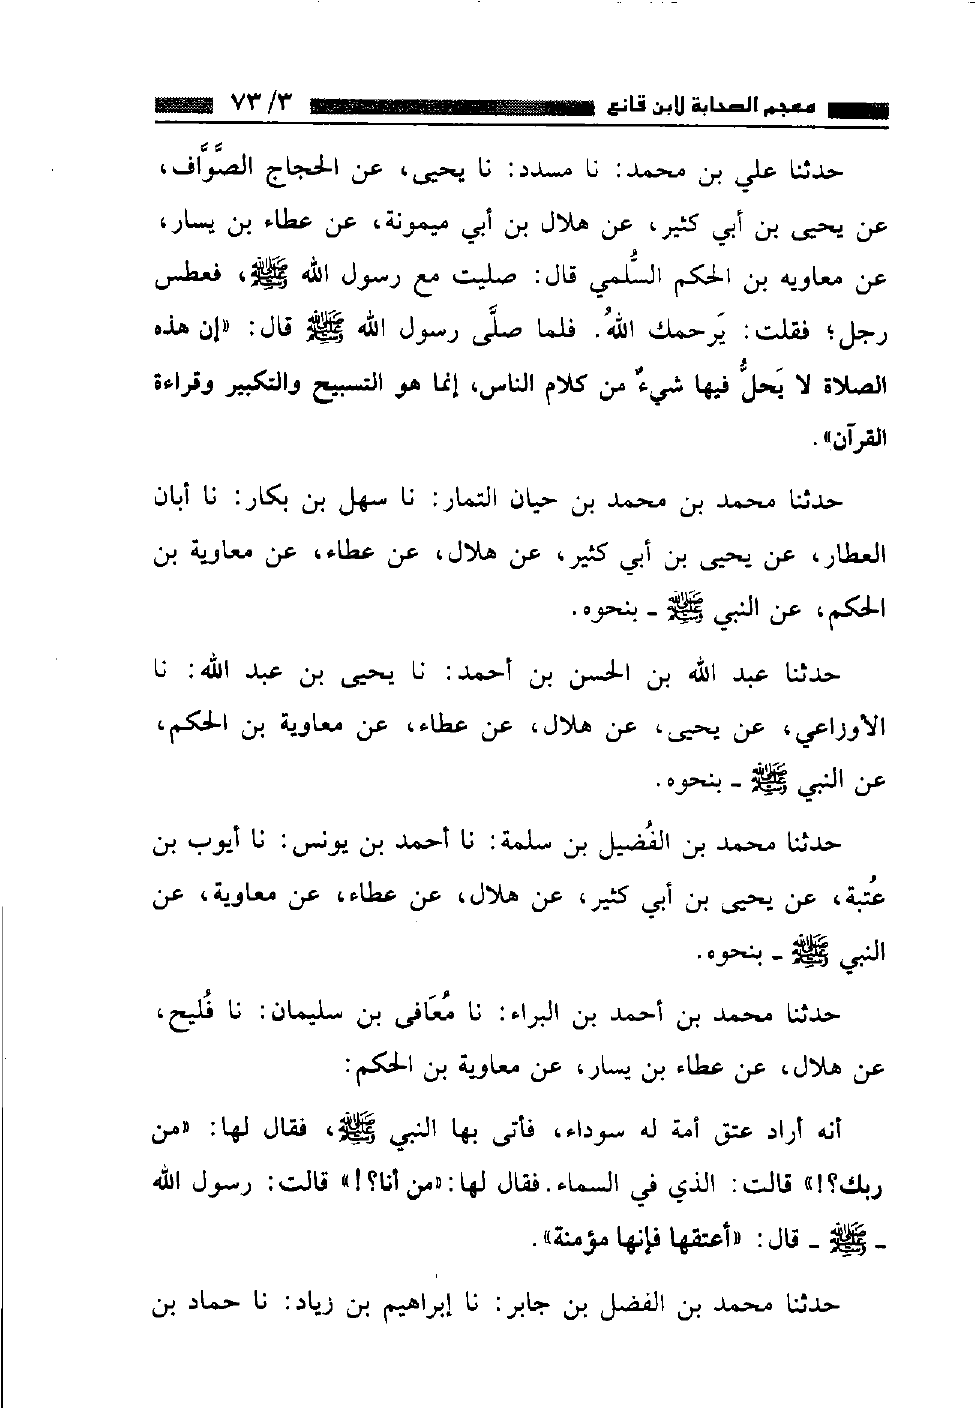 معجم الصحابة لابن قانع ٧٣/٣
حدثنا علي بن محمد: نا مسدد: نا يحيى، عن الحجاج الصَّوَّاف،
عن يحيى بن أبي كثير، عن هلال بن أبي ميمونة، عن عطاء بن يسار،
عن معاويه بن الحكم السُّلمي قال: صليت مع رسول الله ﷺ، فعطس
رجل؛ فقلت: يَرحمك اللهُ. فلما صلَّى رسول الله ﷺ قال: «إن هذه
الصلاة لا يَحلُّ فيها شيءٌ من كلام الناس، إنما هو التسبيح والتكبير وقراءة
القرآن».
حدثنا محمد بن محمد بن حيان التمار: نا سهل بن بكار: نا أبان
العطار، عن يحيى بن أبي كثير، عن هلال، عن عطاء، عن معاوية بن
الحكم، عن النبي ﷺ ـ بنحوه.
حدثنا عبد الله بن الحسن بن أحمد: نا يحيى بن عبد الله: نا
الأوزاعي، عن يحيى، عن هلال، عن عطاء، عن معاوية بن الحكم،
عن النبي ﷺ ـ بنحوه.
حدثنا محمد بن الفُضيل بن سلمة: نا أحمد بن يونس: نا أيوب بن
عُتبة، عن يحيى بن أبي كثير، عن هلال، عن عطاء، عن معاوية، عن
النبي ﷺ ـ بنحوه.
حدثنا محمد بن أحمد بن البراء: نا مُعَافى بن سليمان: نا فُليح،
عن هلال، عن عطاء بن يسار، عن معاوية بن الحكم:
أنه أراد عتق أمة له سوداء، فأتى بها النبي ﷺ، فقال لها: «من
ربك؟!» قالت: الذي في السماء. فقال لها: «من أنا؟!» قالت: رسول الله
ـ ﷺ ـ قال: «أعتقها فإنها مؤمنة».
حدثنا محمد بن الفضل بن جابر: نا إبراهيم بن زياد: نا حماد بن